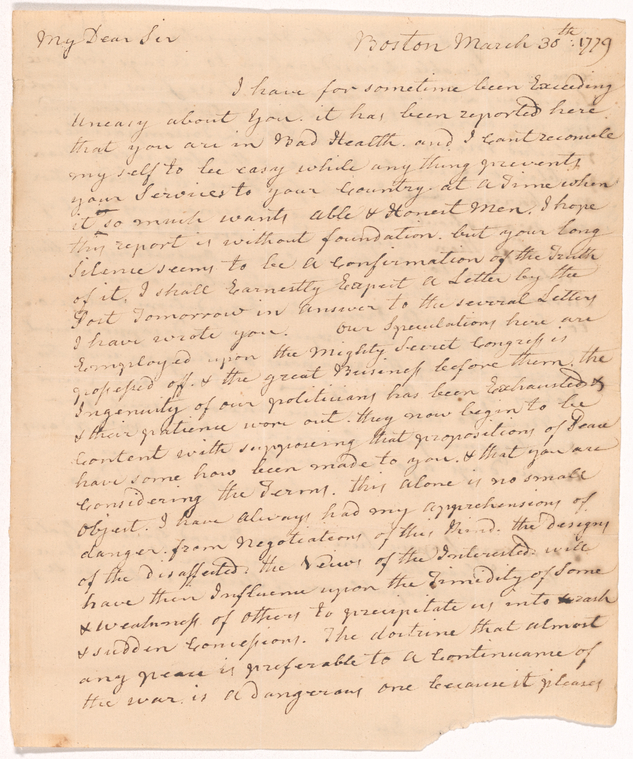 My Dear Sir
Boston March 30th: 1779
I have for sometime been Exceeding
uneasy about You. it has been reported here
that you are in Bad Health. and I cant reconcile
my self to be easy while any thing prevents
your Services to your Country. at a Time when
it so much wants Able & Honest Men. I hope
this report is without foundation. but your long
Silence seems to be a Confirmation of the Truth
of it. I shall Earnestly Expect a Letter by the
Post Tomorrow in answer to the several Letters
I have wrote you. Our Speculations here are
Employed upon the Mighty Secret Congress is
possessed off. & the great Business before them. the
Ingenuity of our politicians has been Exhausted
& their patience worn out. they now begin to be
Content with supposing that propositions of Peace
have some how been made to you. & that you are
Considering the Terms. this alone is no small
Object. I have always had my apprehensions of
danger from Negotiations of this Kind. the designs
of the disaffected. the Views of the Interested. will
have their Influence upon the Timedity of Some
& weakness of others to precipitate us into rash
& sudden Concessions. The doctrine that almost
any peace is preferable to a Continuance of
the war. is a dangerous one because it pleases